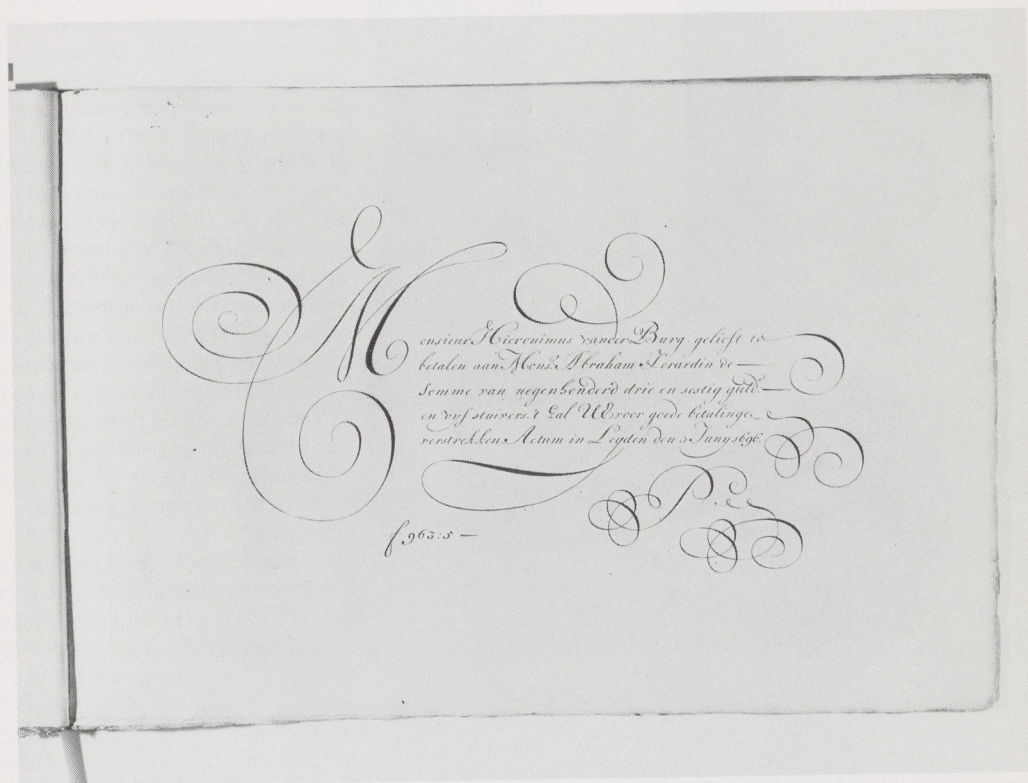 Monsieur Hieronimus vander Burg gelieft te
betalen aan Monsr. Abraham Terardin de
Somme van negenhonderd drie en sestig guld.
en vyf stuivers. 't Sal UE voor goede betalinge
verstrekken Actum in Leyden den 5 Juny 1696.
P.
f 963:5 —